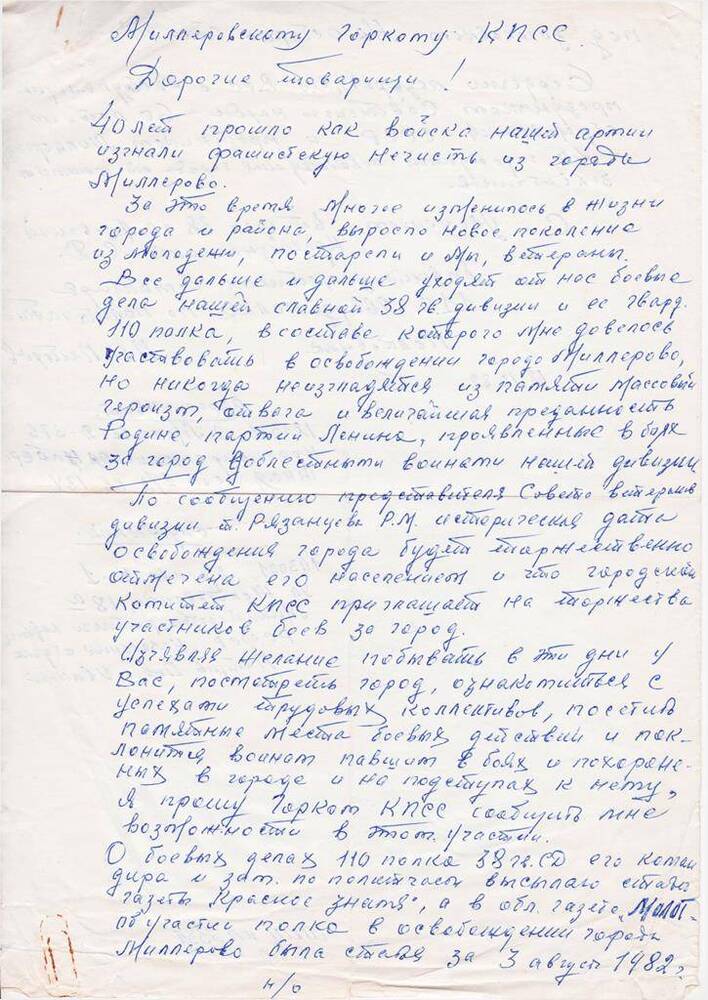 Миллеровскому Горкому КПСС.
Дорогие товарищи!
40 лет прошло как войска нашей армии
изгнали фашистскую нечисть из города
Миллерово.
За это время многое изменилось в жизни
города и района, выросло новое поколение
из молодежи, постарели и мы, ветераны.
Все дальше и дальше уходят от нас боевые
дела нашей славной 38 гв. дивизии и ее гвард.
110 полка, в составе которого мне довелось
участвовать в освобождении города Миллерово,
но никогда неизгладятся из памяти массовый
героизм, отвага и величайшая преданность
Родине, партии Ленина, проявленные в боях
за город доблестными воинами нашей дивизии
По сообщению представителя Совета ветеранов
дивизии т. Рязанцева Р.М. историческая дата
освобождения города будет торжественно
отмечена его населением и что городской
Комитет КПСС приглашает на торжества
участников боев за город.
Изъявляя желание побывать в эти дни у
Вас, посмотреть город, ознакомиться с
успехами трудовых коллективов, посетить
памятные места боевых действий и пок-
лонится воинам павшим в боях и похоронен-
ных в городе и на подступах к нему,
Я прошу Горком КПСС сообщить мне
возможности в этом участии.
О боевых делах 110 полка 38 гв. СД его коман
дира и зам. по политчасти высылаю статью
газеты "Красное знамя", а в обл. газете "Молот"-
об участии полка в освобождении города
Миллерово была статья за 3 август 1982 г.
н/о